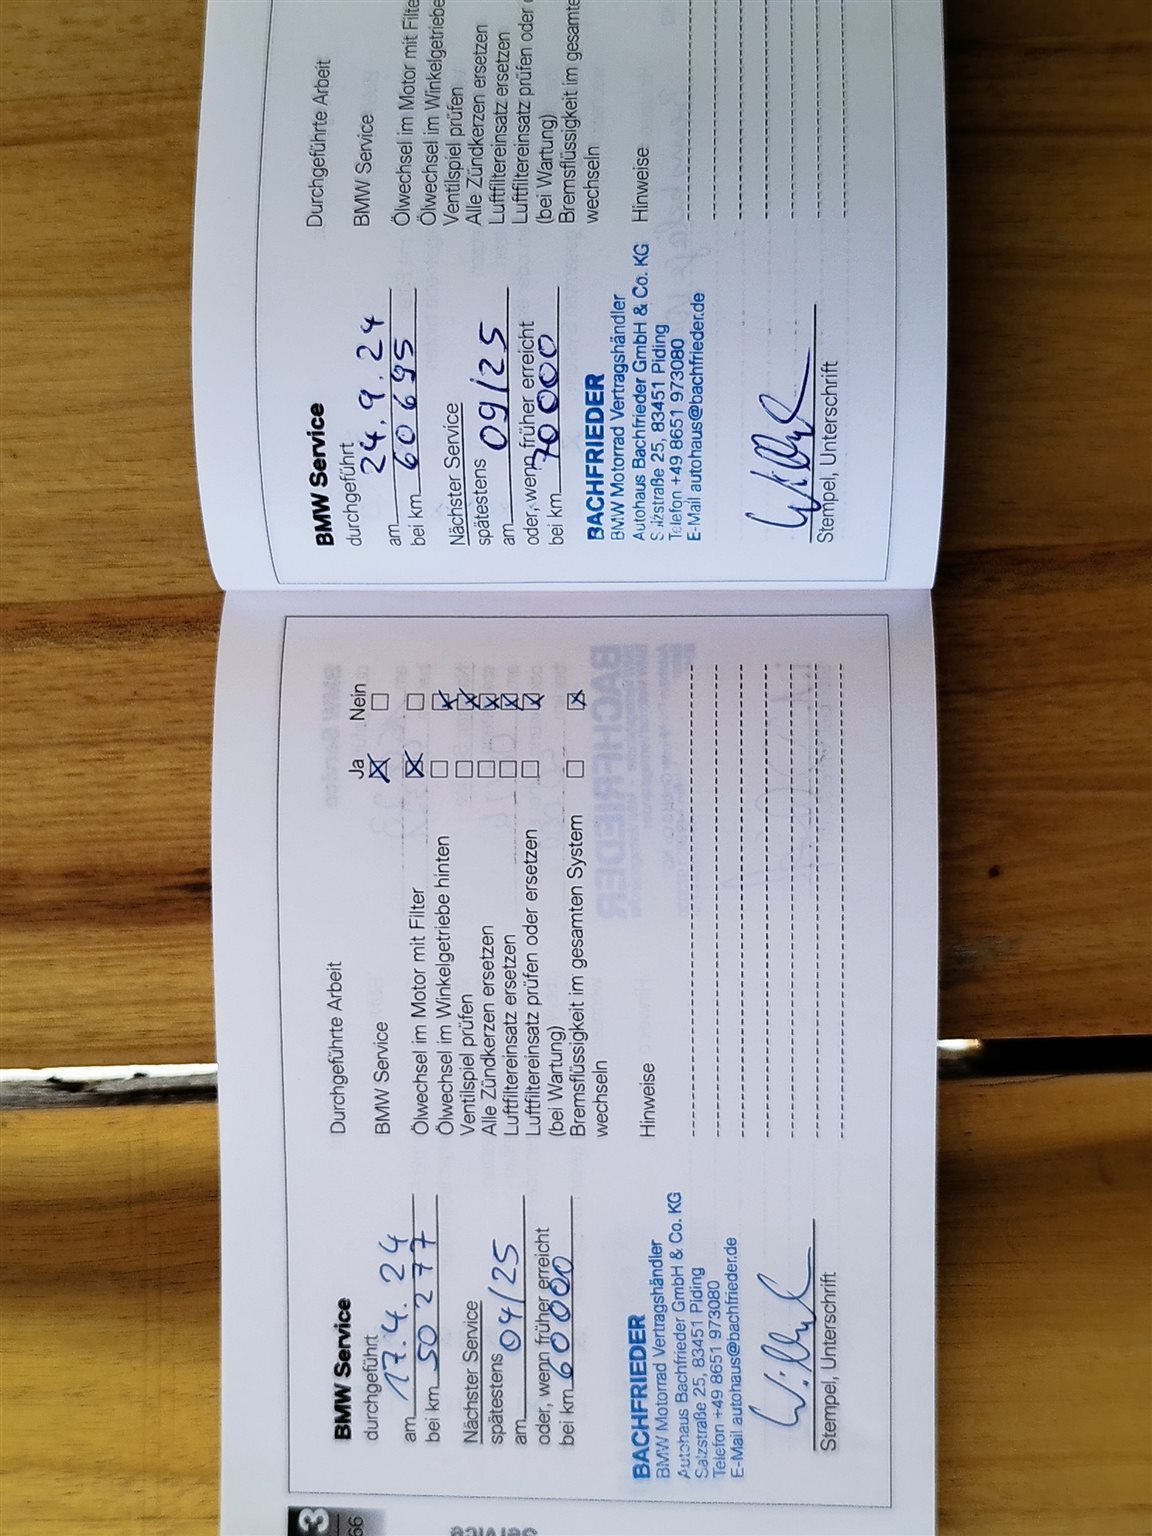 BMW Service
durchgeführt
am 17. 4. 24
bei km 50 277
Nächster Service
spätestens
am 04/25
oder, wenn früher erreicht
bei km 60000
BACHFRIEDER
BMW Motorrad Vertragshändler
Autohaus Bachfrieder GmbH & Co. KG
Salzstraße 25, 83451 Piding
Telefon +49 8651 973080
E-Mail autohaus@bachfrieder.de
Stempel, Unterschrift
Durchgeführte Arbeit
Ja Nein
BMW Service
Ölwechsel im Motor mit Filter
Ölwechsel im Winkelgetriebe hinten
Ventilspiel prüfen
Alle Zündkerzen ersetzen
Luftfiltereinsatz ersetzen
Luftfiltereinsatz prüfen oder ersetzen
(bei Wartung)
Bremsflüssigkeit im gesamten System
wechseln
Hinweise
3
66
BMW Service
durchgeführt
am 24. 9. 24
bei km 60 695
Nächster Service
spätestens
am 09/25
oder, wenn früher erreicht
bei km 70000
BACHFRIEDER
BMW Motorrad Vertragshändler
Autohaus Bachfrieder GmbH & Co. KG
Salzstraße 25, 83451 Piding
Telefon +49 8651 973080
E-Mail autohaus@bachfrieder.de
Stempel, Unterschrift
Durchgeführte Arbeit
BMW Service
Ölwechsel im Motor mit Filte
Ölwechsel im Winkelgetriebe
Ventilspiel prüfen
Alle Zündkerzen ersetzen
Luftfiltereinsatz ersetzen
Luftfiltereinsatz prüfen oder
(bei Wartung)
Bremsflüssigkeit im gesamte
wechseln
Hinweise